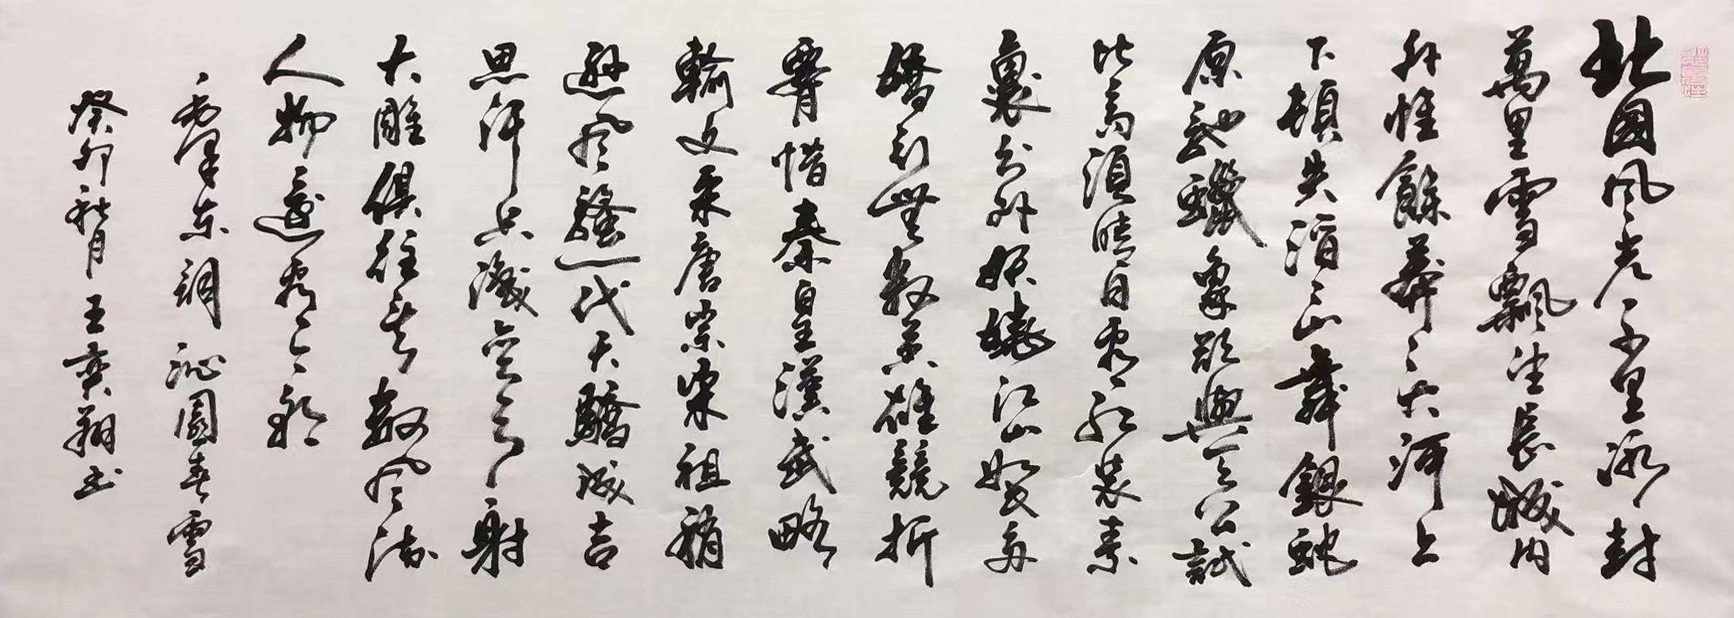 北國風光千里冰封
萬里雪飄望長城内
外惟餘莽〻大河上
下頓失滔〻山舞銀蛇
原馳蠟象欲與天公試
比高須晴日看紅裝素
裹分外妖嬈江山如此多
嬌引無數英雄競折
腰惜秦皇漢武略
輸文采唐宗宋祖稍
遜風騷一代天驕成吉
思汗只識彎弓射
大雕俱往矣數風流
人物還看今朝
毛澤東詞 沁園春雪
癸卯秋月 王奕翔書